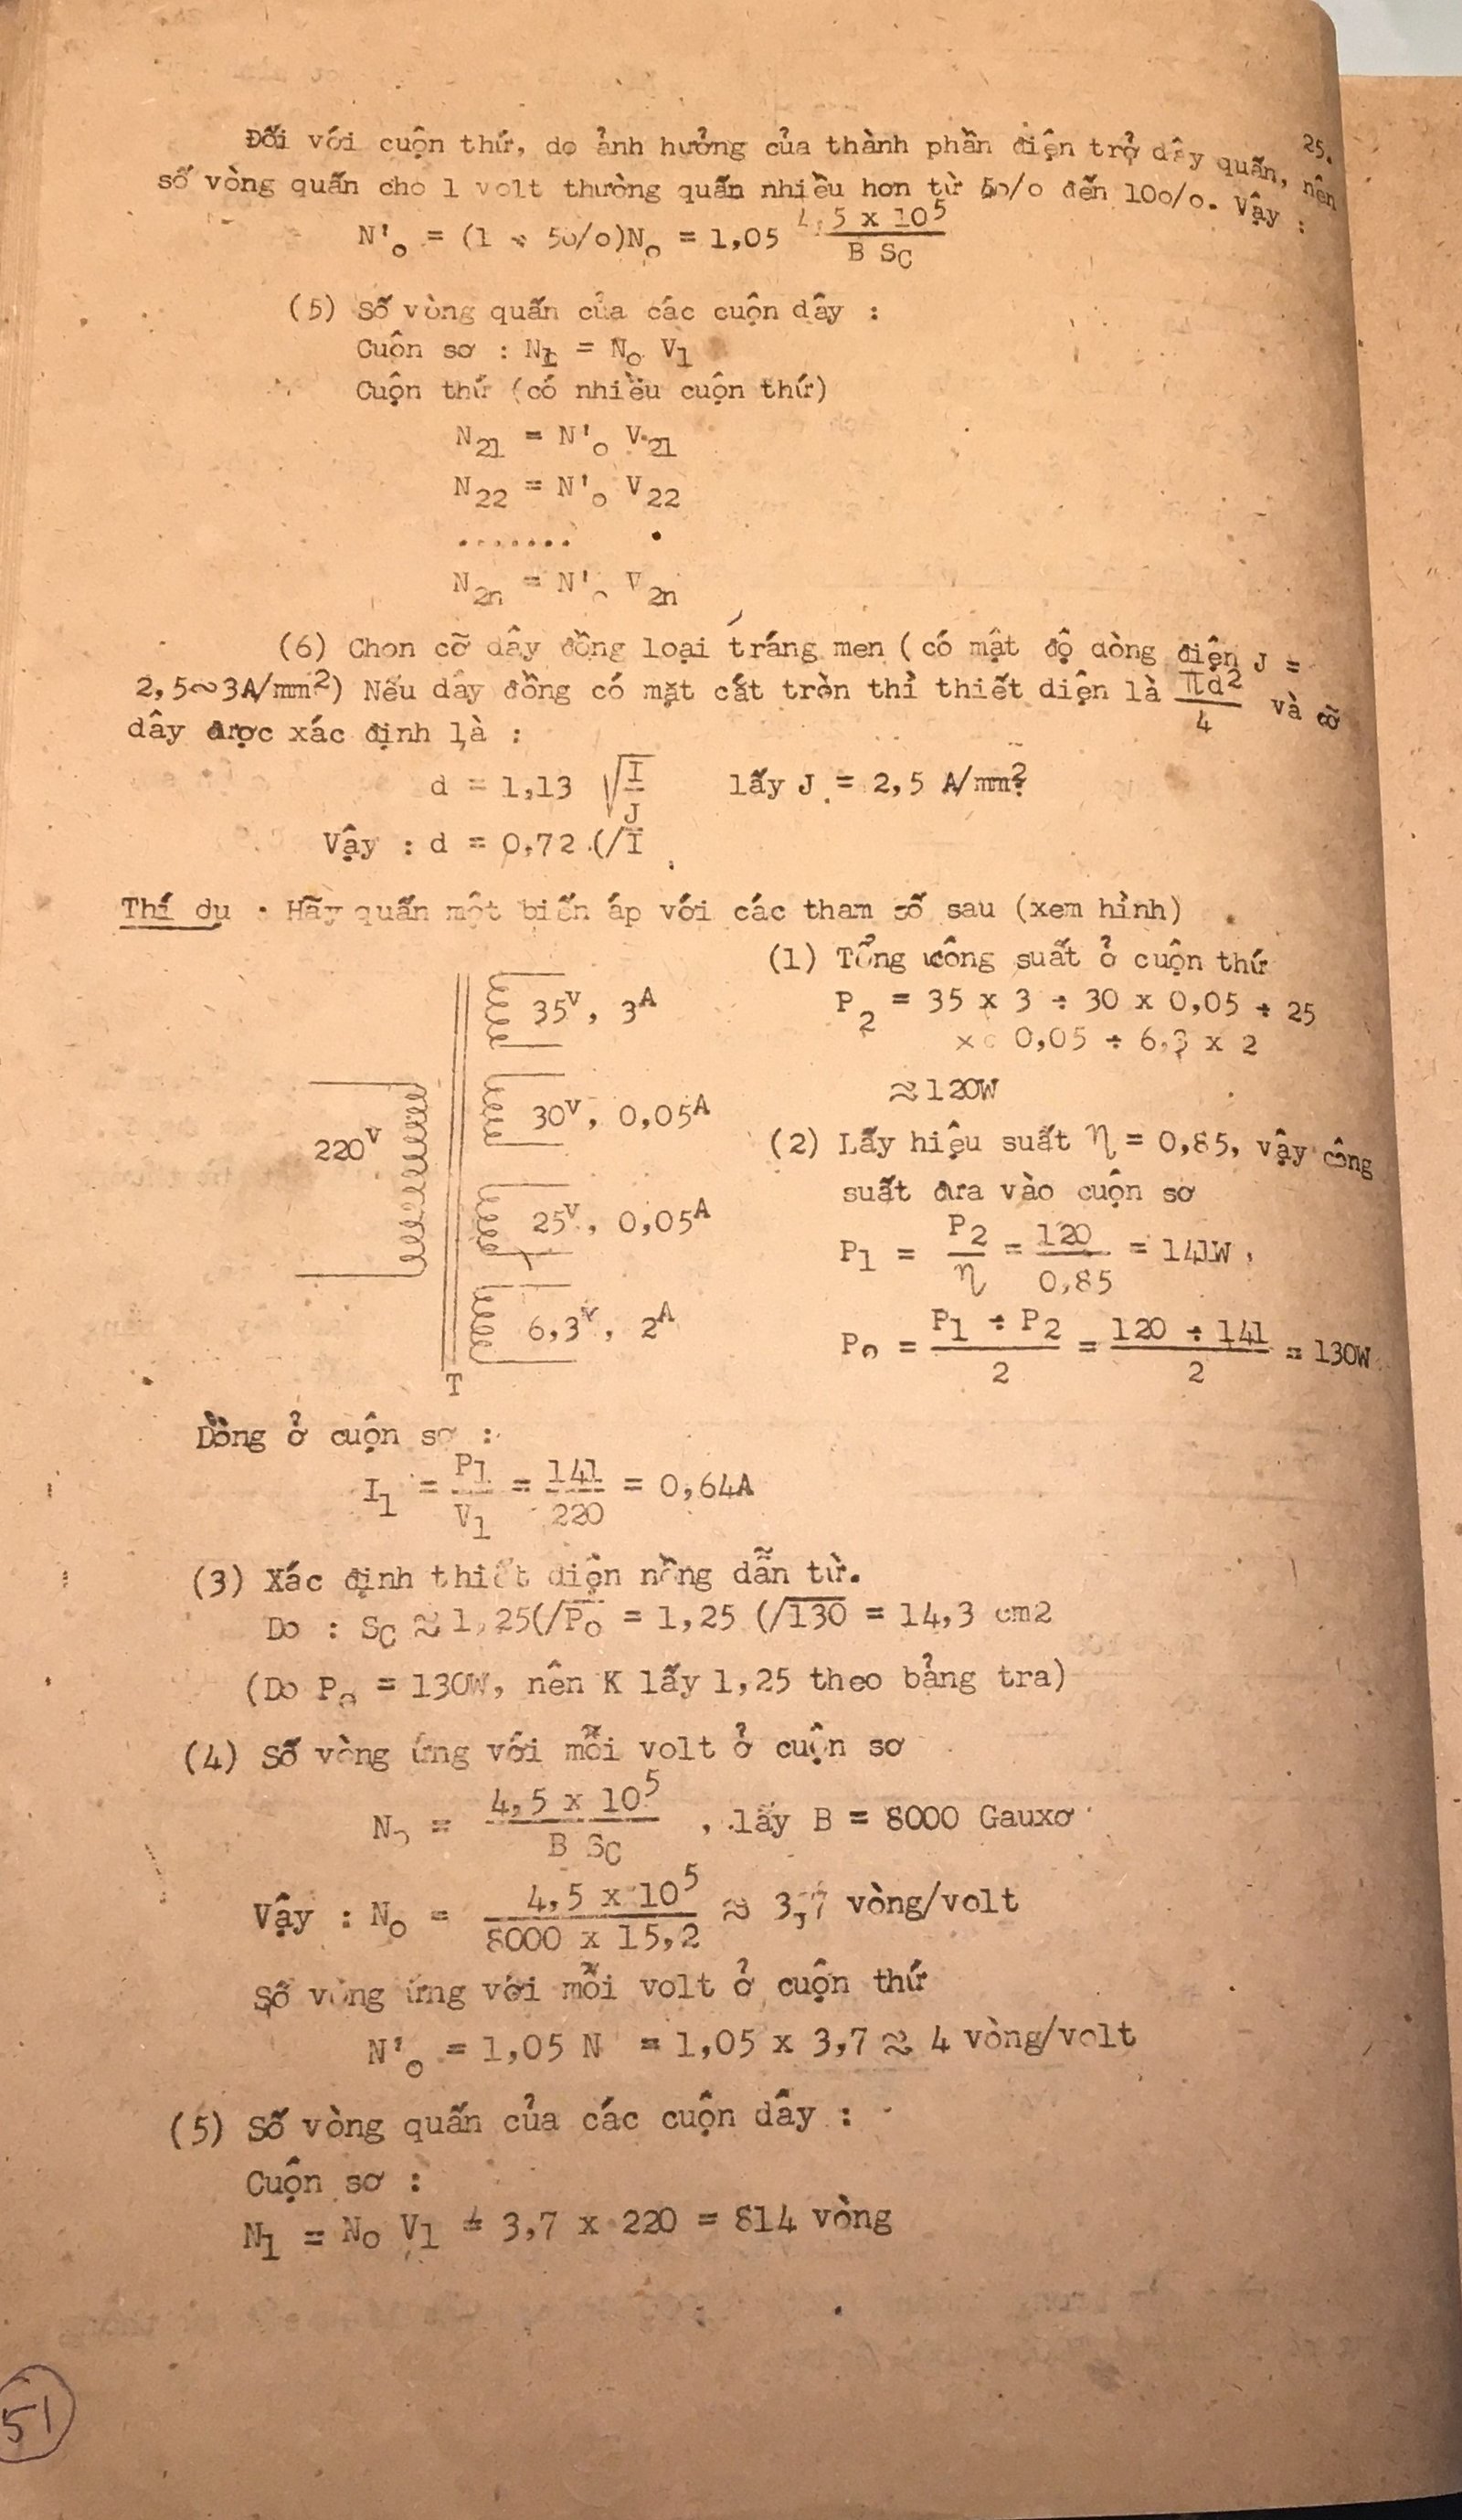 25.
Đối với cuộn thứ, do ảnh hưởng của thành phần điện trở dây quấn, nên
số vòng quấn cho 1 volt thường quấn nhiều hơn từ 5o/o đến 10o/o. Vậy :
N'o = (1 + 5o/o)No = 1,05 4,5 x 10⁵ / B SC
(5) Số vòng quấn của các cuộn dây :
Cuộn sơ : N1 = No V1
Cuộn thứ (có nhiều cuộn thứ)
N21 = N'o V21
N22 = N'o V22
....... .
N2n = N'o V2n
(6) Chọn cỡ dây đồng loại tráng men (có mật độ dòng điện J =
2,5∼3A/mm²) Nếu dây đồng có mặt cắt tròn thì thiết diện là πd²/4 và cỡ
dây được xác định là :
d = 1,13 √I/J lấy J = 2,5 A/mm²
Vậy : d = 0,72 √I
Thí dụ : Hãy quấn một biến áp với các tham số sau (xem hình)
220V
35V, 3A
30V, 0,05A
25V, 0,05A
6,3V, 2A
T
(1) Tổng công suất ở cuộn thứ
P2 = 35 x 3 + 30 x 0,05 + 25
x 0,05 + 6,3 x 2
≈ 120W
(2) Lấy hiệu suất η = 0,85, vậy công
suất đưa vào cuộn sơ
P1 = P2/η = 120/0,85 = 141W
Po = P1 + P2 / 2 = 120 + 141 / 2 = 130W
Dòng ở cuộn sơ :
I1 = P1/V1 = 141/220 = 0,64A
(3) Xác định thiết diện nồng dẫn từ.
Do : SC ≈ 1,25√Po = 1,25 √130 = 14,3 cm2
(Do Po = 130W, nên K lấy 1,25 theo bảng tra)
(4) Số vòng ứng với mỗi volt ở cuộn sơ
No = 4,5 x 10⁵ / B SC , lấy B = 8000 Gauxơ
Vậy : No = 4,5 x 10⁵ / 8000 x 15,2 ≈ 3,7 vòng/volt
Số vòng ứng với mỗi volt ở cuộn thứ
N'o = 1,05 N = 1,05 x 3,7 ≈ 4 vòng/volt
(5) Số vòng quấn của các cuộn dây :
Cuộn sơ :
N1 = No V1 = 3,7 x 220 = 814 vòng
51